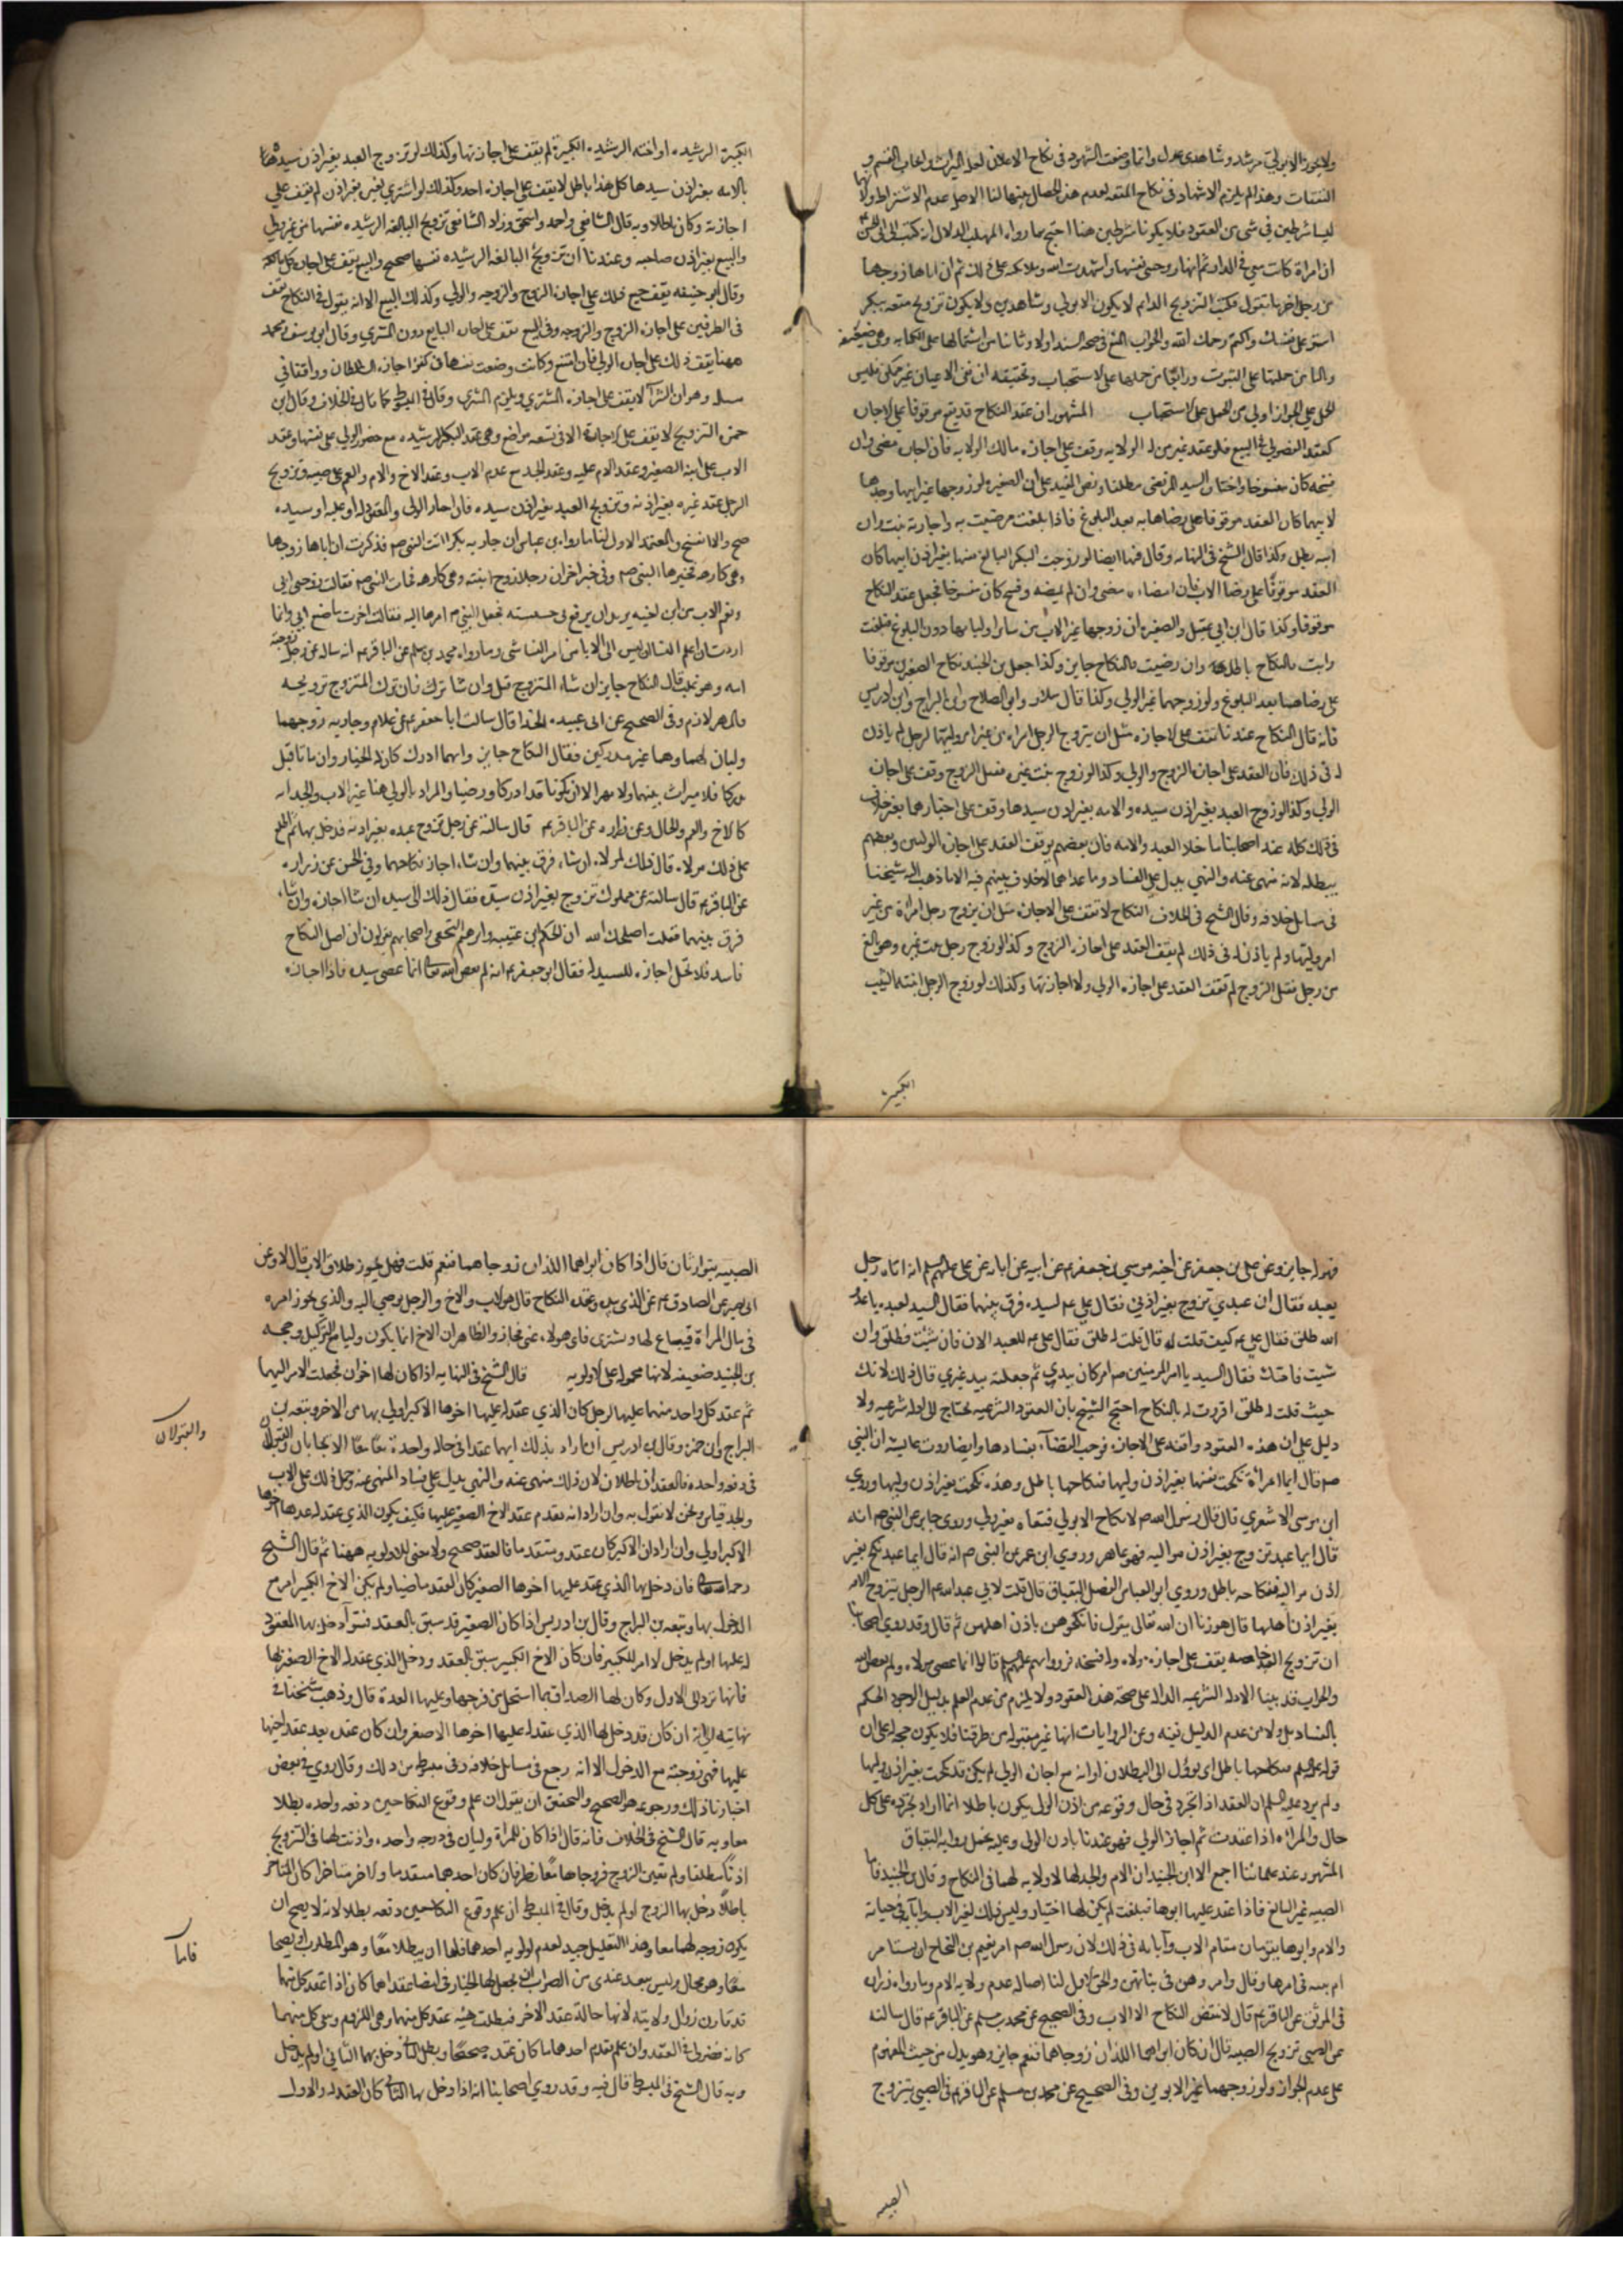 ولا يجوز الا بولي مرشد وشاهدي عدل وانما وضعت الشهود في نكاح الاعلان لعلة الميراث وايجاب القسم و
النفقات وهذا لم يلزم الاشهاد في نكاح المتعه لعدم هذه الخصال فيها لنا الاصل عدم الاشتراط ولانهما
ليسا شرطين في شي من العقود فلا يكونا شرطين هنا احتج بما رواه المهلب الدلال انه كتب الى ابي الحسن
ان امراة كانت معي في الدار ثم انها زوجتني نفسها واشهدت الله وملائكته على ذلك ثم ان اباها زوجها
من رجل اخر فما تقول فكتب التزويج الدايم لا يكون الا بولي وشاهدين ولا يكون تزويج متعه ببكر
استر على نفسك واكتم رحمك الله والجواب المنع في صحة السند اولا وثانيا من اشتمالها على الكتابه وهي ضعيفه
وثالثا من حملها على الثبوت ورابعا من حملها على الاستحباب وتحقيقه ان نفي الاعيان غير ممكن فليس
الحمل على الجواز اولى من الحمل على الاستحباب المشهور ان عقد النكاح قد يقع موقوفا على الاجازه
كعقد الفضولي في البيع فلو عقد غير من له الولايه وقف على اجازه مالك الولايه فان اجاز مضى وان
فسخه كان مفسوخا واختاره السيد المرتضى مطلقا ونص المفيد على ان الصغيره لو زوجها غير ابيها وجدها
لابيها كان العقد موقوفا على رضاها به بعد البلوغ فاذا بلغت فرضيت به واجازته ثبت وان
ابته بطل وكذا قال الشيخ في النهايه وقال فيها ايضا لو زوجت البكر البالغ نفسها بغير اذن ابيها كان
العقد موقوفا على رضا الاب فان امضاه مضى وان لم يمضه وفسخ كان مفسوخا فجعل عقد النكاح
موقوفا وكذا قال ابن ابي عقيل والصغيره ان زوجها غير الاب من ساير اوليائها دون البلوغ فبلغت
وابت فالنكاح باطل وان رضيت فالنكاح جايز وكذا جعل بن الجنيد نكاح الصغيرين موقوفا
على رضاهما بعد البلوغ ولو زوجهما غير الولي وكذا قال سلار وابو الصلاح وابن البراج وابن ادريس
فانه قال النكاح عندنا يقف على الاجازه مثل ان يتزوج الرجل امراه من غير امر وليها لرجل لم ياذن
له في ذلك فان العقد على اجازة الزوج والولي وكذا لو زوج بنت غيره فقبل الزوج وقف على اجازة
الولي وكذا لو زوج العبد بغير اذن سيده والامه بغير اذن سيدها وقف على اجازتهما بغير خلاف
في ذلك كله عند اصحابنا ما خلا العبد والامه فان بعضهم يوقف العقد على اجازة الوليين وبعضهم
يبطله لانه منهي عنه والنهي يدل على الفساد وما عداهما لا خلاف بينهم فيه الا ما ذهب اليه شيخنا
في مسايل خلافه وقال الشيخ في الخلاف النكاح لا تقف على الاجازه مثل ان يزوج رجل امراة من غير
امر وليها ولم ياذن له في ذلك لم يقف العقد على اجازه الزوج وكذا لو زوج رجل بنت غيره وهو بالغ
من رجل فقبل الزوج لم تقف العقد على اجازه الولي ولا اجازتها وكذلك لو زوج الرجل ابنته الثيب
الكبيرة
الكبيرة الرشيده او اخته الرشيده الكبيرة لم يقف على اجازتها وكذلك لو تزوج العبد بغير اذن سيده
بالامه بغير اذن سيدها كل هذا باطل لا يقف على اجازه احد وكذلك لو اشترى لغيره بغير اذن لم يقف على
اجازته وكان باطلا وبه قال الشافعي واحمد واسحق وزاد الشافعي تزويج البالغه الرشيده نفسها من غير ولي
والبيع بغير اذن صاحبه وعندنا ان تزويج البالغه الرشيده نفسها صحيح والبيع يقف على اجازه مالكه
وقال ابو حنيفه يقف جميع ذلك على اجازه الزوج والزوجه والولي وكذلك البيع الا انه يقول في النكاح يقف
في الطرفين على اجازه الزوج والزوجه وفي البيع تقف على اجازه البايع دون المشتري وقال ابو يوسف ومحمد
ههنا يقف ذلك على اجازه الولي فان امتنع وكانت وضعت نفسها في كفؤ اجازه السلطان ووافقنا في
مساله وهو ان الشرآ لا يقف على اجازه المشتري ويلزم المشتري وقال في المبسوط كما قال في الخلاف وقال ابن
حمزه التزويج لا يقف على الاجازة الا في تسعه مواضع وهي عقد البكر الرشيده مع حضور الولي على نفسها وعقد
الاب على ابنه الصغير وعقد الام عليه وعقد الجد مع عدم الاب وعقد الاخ والام والعم على صبيه وتزويج
الرجل عقد غيره بغير اذنه وتزويج العبد بغير اذن سيده فان اجاز الولي والمعقود له او عليه او سيده
صح والا انفسخ والمعتمد الاول لنا ما رواه بن عباس ان جاريه بكرا اتت النبي ص فذكرت ان اباها زوجها
وهي كارهه فخيرها النبي ص وفي خبر اخر ان رجلا زوج ابنته وهي كارهه فجات النبي ص فقالت زوجني ابي
ونعم الاب من ابن اخيه يريد ان يرفع بي خسيسته فجعل النبي ص امرها اليها فقالت اجزت ما صنع ابي وانما
اردت ان اعلم النساء ان ليس الى الابا من امر النسا شي وما رواه محمد بن مسلم عن الباقر ع انه ساله عن رجل زوجته
امه وهو غايب قال النكاح جايز ان شاء المتزوج قبل وان شا ترك فان ترك المتزوج تزويجه
فالمهر لازم وفي الصحيح عن ابي عبيده الحذا قال سالت ابا جعفر ع عن غلام وجاريه زوجهما
وليان لهما وهما غير مدركين فقال النكاح جايز وايهما ادرك كان له الخيار وان ماتا قبل
يدركا فلا ميراث بينهما ولا مهر الا ان يكونا قد ادركا ورضيا والمراد بالولي هنا غير الاب والجد له
كالاخ والعم والخال وعن زراره عن الباقر ع قال سالته عن رجل تزوج عبده بغير اذنه فدخل بها ثم اطلع
على ذلك مولاه قال ذلك لمولاه ان شاء فرق بينهما وان شاء اجاز نكاحهما وفي الحسن عن زراره
عن الباقر ع قال سالته عن مملوك تزوج بغير اذن سيده فقال ذلك الى سيده ان شا اجازه وان شاء
فرق بينهما فقلت اصلحك الله ان الحكم ابن عتيبه وابرهيم النخعي واصحابهم يقولون ان اصل النكاح
فاسد فلا تحل اجازه السيد له فقال ابو جعفر ع انه لم يعص الله تعالى انما عصى سيده فاذا اجازه
فهو له جايز وعن علي بن جعفر عن اخيه موسى بن جعفر ع عن ابيه عن ابائه عن علي عليهم السلم انه اتاه رجل
بعبده فقال ان عبدي تزوج بغير اذني فقال علي ع لسيده فرق بينهما فقال السيد لعبده يا عدو
الله طلق فقال علي ع كيف قلت له قال قلت له طلق فقال علي ع للعبد الان فان شئت فطلق وان
شيت فامسك فقال السيد يا امير المومنين ع امر كان بيدي ثم جعلته بيد غيري قال ذلك لانك
حيث قلت له طلق اقررت له بالنكاح احتج الشيخ بان العقود الشرعيه تحتاج الى ادله شرعيه ولا
دليل على ان هذه العقود واقفه على الاجازه فوجب القضآء بفسادها وايضا روت عايشه ان النبي
ص قال ايما امرأة نكحت نفسها بغير اذن وليها فنكاحها باطل وهذه نكحت بغير اذن وليها وروى
ابو موسى الاشعري قال قال رسول الله ص لا نكاح الا بولي فنفاه بغير ولي وروى جابر عن النبي ص انه
قال ايما عبد تزوج بغير اذن مواليه فهو عاهر وروى ابن عمر عن النبي ص انه قال ايما عبد نكح بغير
اذن مواليه فنكاحه باطل وروى ابو العباس الفضل البقباق قال قلت لابي عبد الله ع الرجل يتزوج الامه
بغير اذن اهلها قال هو زنا ان الله تعالى يقول فانكحوهن باذن اهلهن ثم قال وقد روى اصحابنا
ان تزويج العبد خاصه يقف على اجازه مولاه وله فسخه ورووا انهم عليهم السلم قالوا انما عصى مولاه ولم يعص الله
والجواب قد بينا الادله الشرعيه الداله على صحة هذه العقود ولا يلزم من عدم العلم بدليل الوجود الحكم
بالفساد بل ولا من عدم الدليل نفيه وعن الروايات انها غير مقبوله من طرقنا فلا يكون حجه على ان
قوله عليهم السلم فنكاحها باطل اي يؤول الى البطلان او انه مع اجازه الولي لم يكن قد نكحت بغير اذن وليها
ولم يرد عليه السلم ان العقد اذا تجرد في حال وقوعه من اذن الولي يكون باطلا انما اراد تجرده على كل
حال والمراه اذا عقدت ثم اجاز الولي فهو عندنا باذن الولي وعليه يحمل روايه البقباق
المشهور عند علمائنا اجمع الا ابن الجنيد ان الام والجد لها لا ولايه لهما في النكاح وقال بن الجنيد فاما
الصبيه غير البالغ فاذا عقد عليها ابوها فبلغت لم يكن لها اختيار وليس ذلك لغير الاب وابآيه في حياته
والام وابوها يقومان مقام الاب وآبائه في ذلك لان رسول الله ص امر نعيم بن النحام ان يستامر
ام بنته في امرها وقال وامروهن في بناتهن والحق الاول لنا اصاله عدم ولايه الام وما رواه زراره
في الموثق عن الباقر ع قال لا ينقض النكاح الا الاب وفي الصحيح عن محمد بن مسلم عن الباقر ع قال سالته
عن الصبي تزويج الصبيه قال ان كان ابواهما اللذان زوجاهما فنعم جايز وهو يدل من حيث المفهوم
على عدم الجواز ولو زوجهما غير الابوين وفي الصحيح عن محمد بن مسلم عن الباقر ع في الصبي يتزوج
الصبيه
الصبيه يتوارثان قال اذا كان ابواهما اللذان زوجاهما فنعم قلت فهل يجوز طلاق الاب قال لا وعن
ابي بصير عن الصادق ع عن الذي بيده عقدة النكاح قال هو الاب والاخ والرجل يوصي اليه والذي يجوز امره
في مال المراة فيبتاع لها ويشتري فاي هولاء عفى فجاز والظاهر ان الاخ انما يكون وليا مع التوكيل وحجه
بن الجنيد ضعيفه لانها محموله على الاولويه قال الشيخ في النهايه اذا كان لها اخوان فجعلت الامر اليهما
ثم عقد كل واحد منهما عليها لرجل كان الذي عقد له عليها اخوها الاكبر اولى بها من الاخر وتبعه بن
البراج وابن حمزه وقال بن ادريس ان اراد بذلك انهما عقدا في حالة واحدة معا معا الايجابان والقبولان
والقبولان
في دفعه واحده فالعقدان باطلان لان ذلك منهي عنه والنهي يدل على فساد المنهى عنه وحمل ذلك على الاب
والجد قياس ونحن لا نقول به وان اراد انه تقدم عقد الاخ الصغير عليها فكيف يكون الذي عقد له عليها اخوها
الاكبر اولى وان اراد ان الاكبر كان عقده متقدما فالعقد صحيح ولا معنى للاولويه ههنا ثم قال الشيخ
رحمه الله تعالى فان دخل بها الذي عقد عليها اخوها الصغير كان العقد ماضيا ولم يكن للاخ الكبير امر مع
الدخول بها وتبعه بن البراج وقال بن ادريس اذا كان الصغير قد سبق بالعقد فسوآء دخل بها المعقود
له عليها او لم يدخل لا امر للكبير فان كان الاخ الكبير سبق بالعقد ودخل الذي عقد له الاخ الصغير بها
فانها ترد الى الاول وكان لها الصداق بما استحل من فرجها وعليها العدة قال وذهب شيخنا في
نهايته الى انه ان كان قد دخل بها الذي عقد له عليها اخوها الاصغر وان كان عقده بعد عقد اخيها
عليها فهي زوجته مع الدخول الا انه رجع في مسايل خلافه وفي مبسوطه من ذلك وقال روي في بعض
اخبارنا ذلك ورجوعه هو الصحيح والتحقيق ان يقول ان علم وقوع النكاحين دفعه واحده بطلا
معا وبه قال الشيخ في الخلاف فانه قال اذا كان للمرأة وليان في درجه واحده واذنت لهما في التزويج
اذنا مطلقا ولم تعين الزوج فزوجاها معا نظر فان كان احدهما متقدما والاخر متاخرا كان المتاخر
باطلا دخل بها الزوج او لم يدخل وقال في المبسوط ان علم وقوع النكاحين دفعه بطلا لانه لا يصح ان
يكون زوجه لهما معا وهذا التعليل جيد لعدم اولويه احدهما فاما ان يبطلا معا وهو المطلوب او يصحا
فاما
معا وهو محال وليس ببعيد عندي من الصواب ان يجعل لها الخيار في امضا عقد ايهما كان اذا عقد كل منهما
قد قارن زوال ولايته لانها حالة عقد الاخر فبطلت هيه عقد كل منهما وهي اللزوم وبقى كل منهما
كانه فضولي في العقد وان علم تقدم احدهما كان عقده صحيحا وبطل الثاني دخل بها الثاني او لم يدخل
وبه قال الشيخ في المبسوط قال فيه وقد روى اصحابنا انه اذا دخل بها الثاني كان العقد له والاول